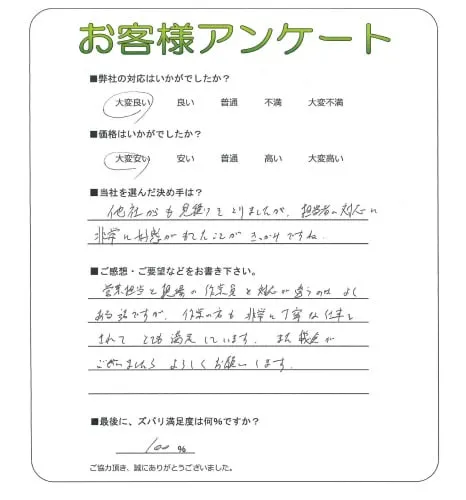 お客様アンケート
■弊社の対応はいかがでしたか?
大変良い 良い 普通 不満 大変不満
■価格はいかがでしたか?
大変安い 安い 普通 高い 大変高い
■当社を選んだ決め手は?
他社からも見積りをとりましたが、担当者の対応に
非常に好感がもてたことがきっかけですね。
■ご感想・ご要望などをお書き下さい。
営業担当と現場の作業員と対応が違うのはよく
ある話ですが、作業の方も非常に丁寧な仕事を
されてとても満足しています。また機会が
ございましたらよろしくお願いします。
■最後に、ズバリ満足度は何%ですか?
100 %
ご協力頂き、誠にありがとうございました。